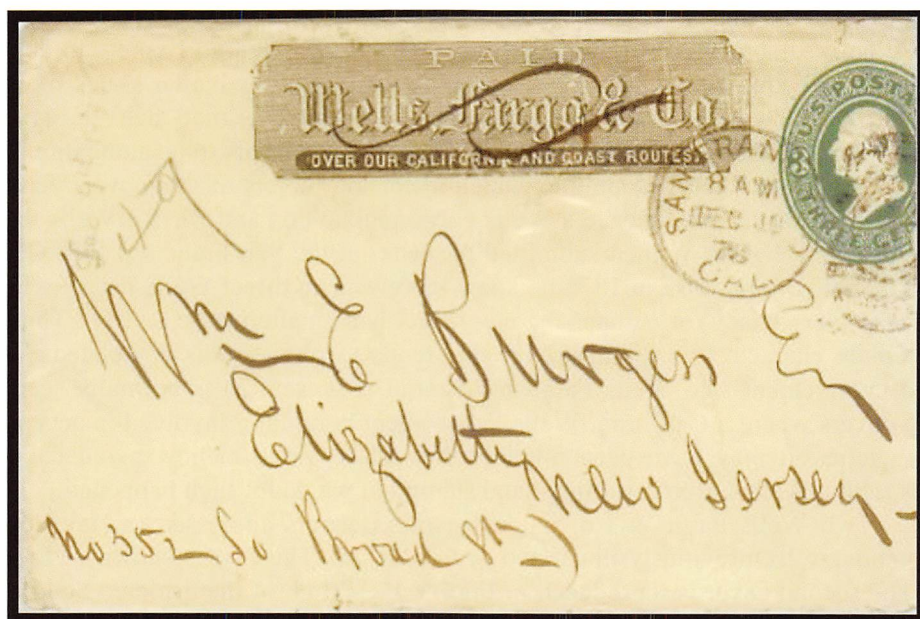 PAID
Wells, Fargo & Co.
OVER OUR CALIFORNIA AND COAST ROUTES.
U.S. POSTA
THREE CEN
SAN FRAN
8 AM
DEC
CAL
49
Wm E Burgess Esq
Elizabeth
New Jersey
No 352 So Broad St)